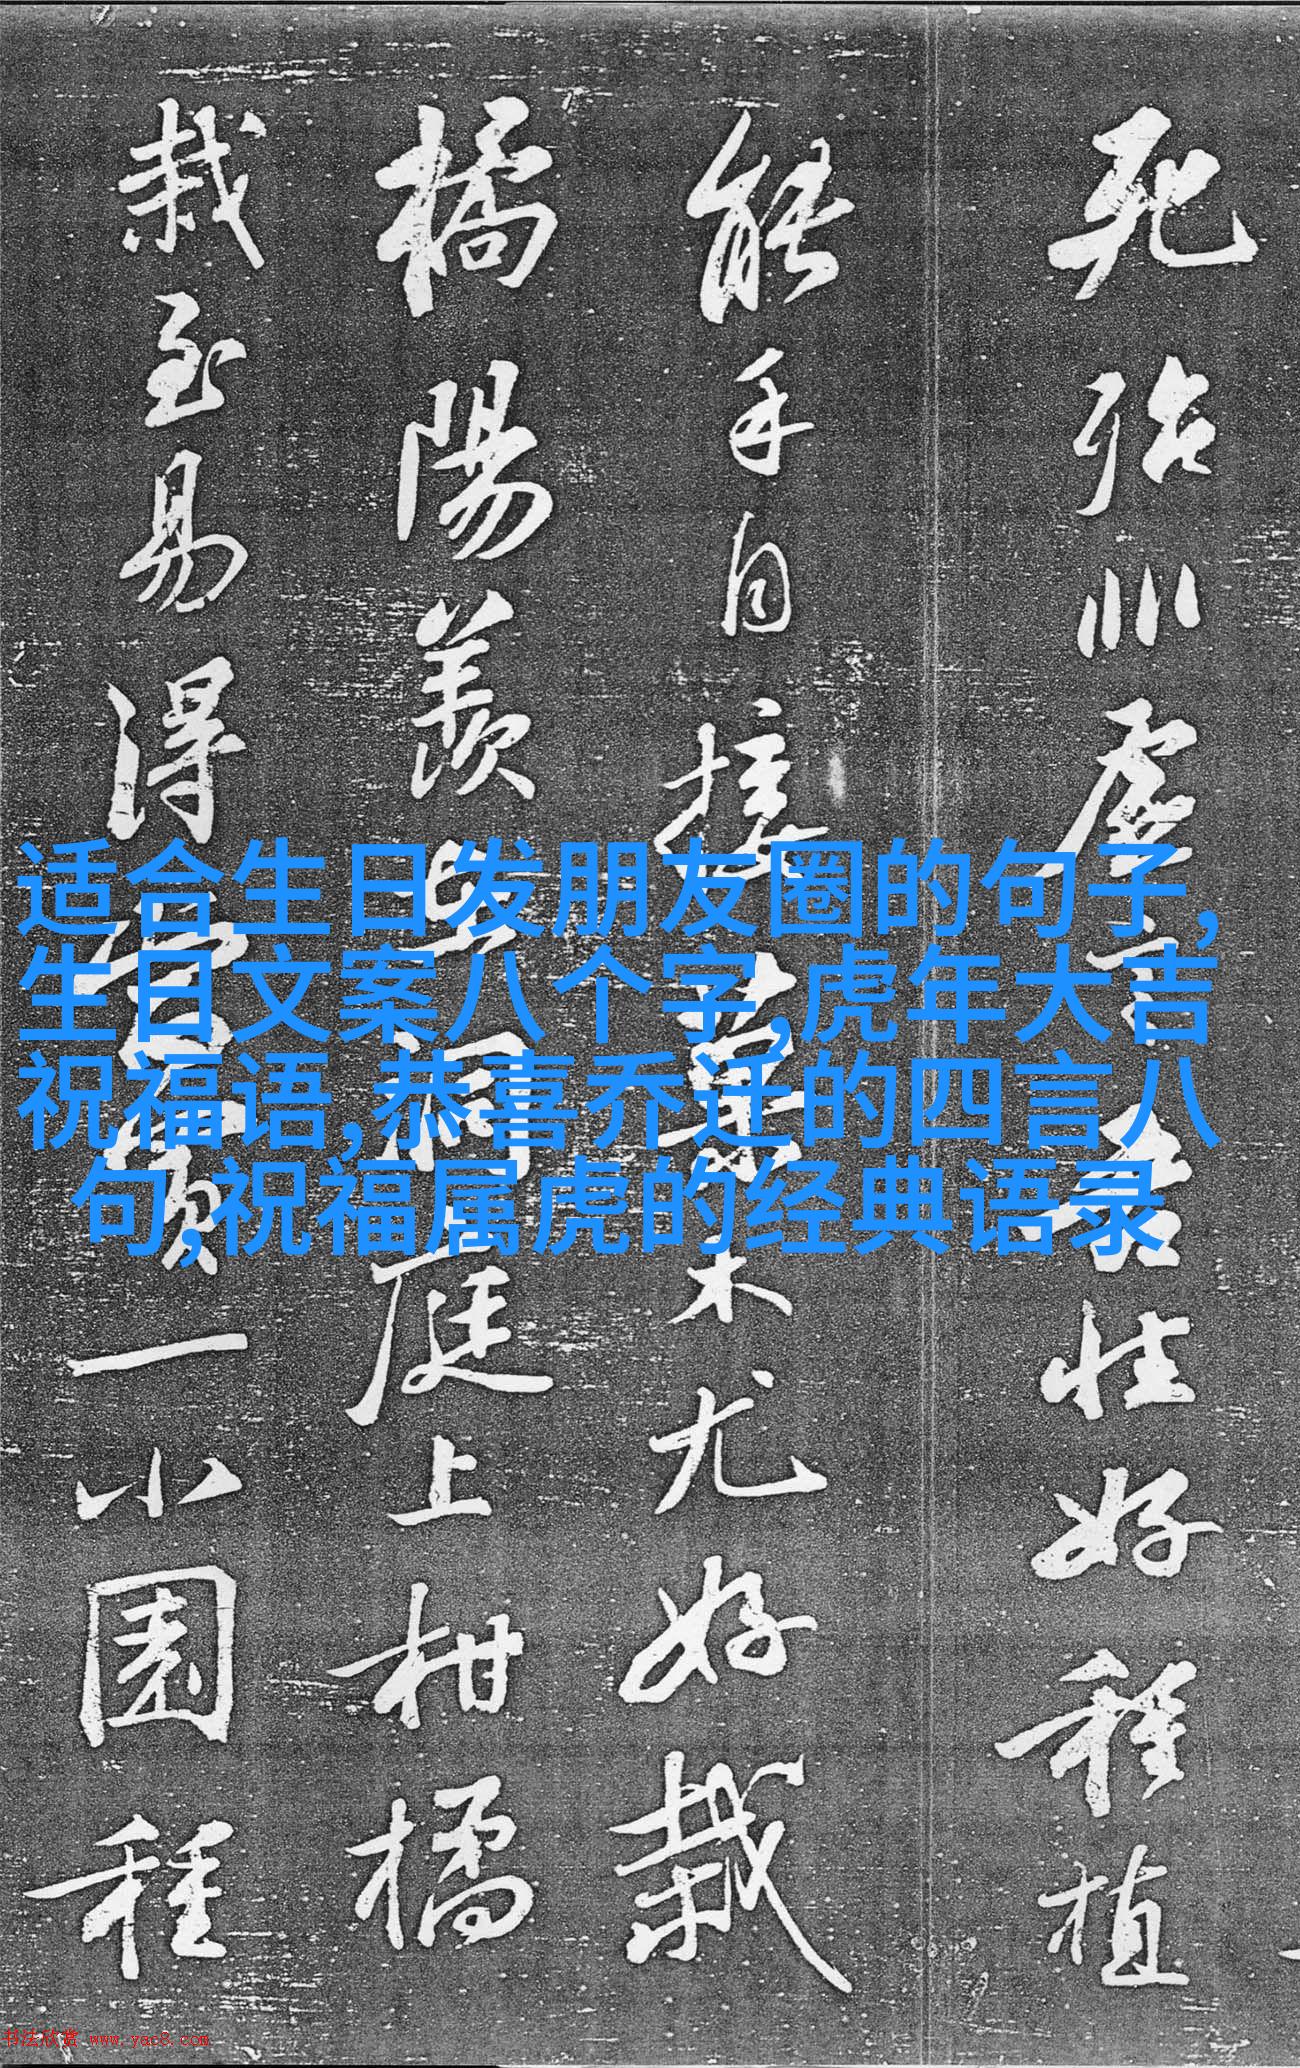 死殆非虚言吾性好種植
能手自接菓木尤好栽
橘陽羨在洞庭上柑橘
栽至易得當買一小園種
适合生日发朋友圈的句子,
生日文案八个字,虎年大吉
祝福语,恭喜乔迁的四言八
句,祝福属虎的经典语录
书法欣赏 www.yac8.com